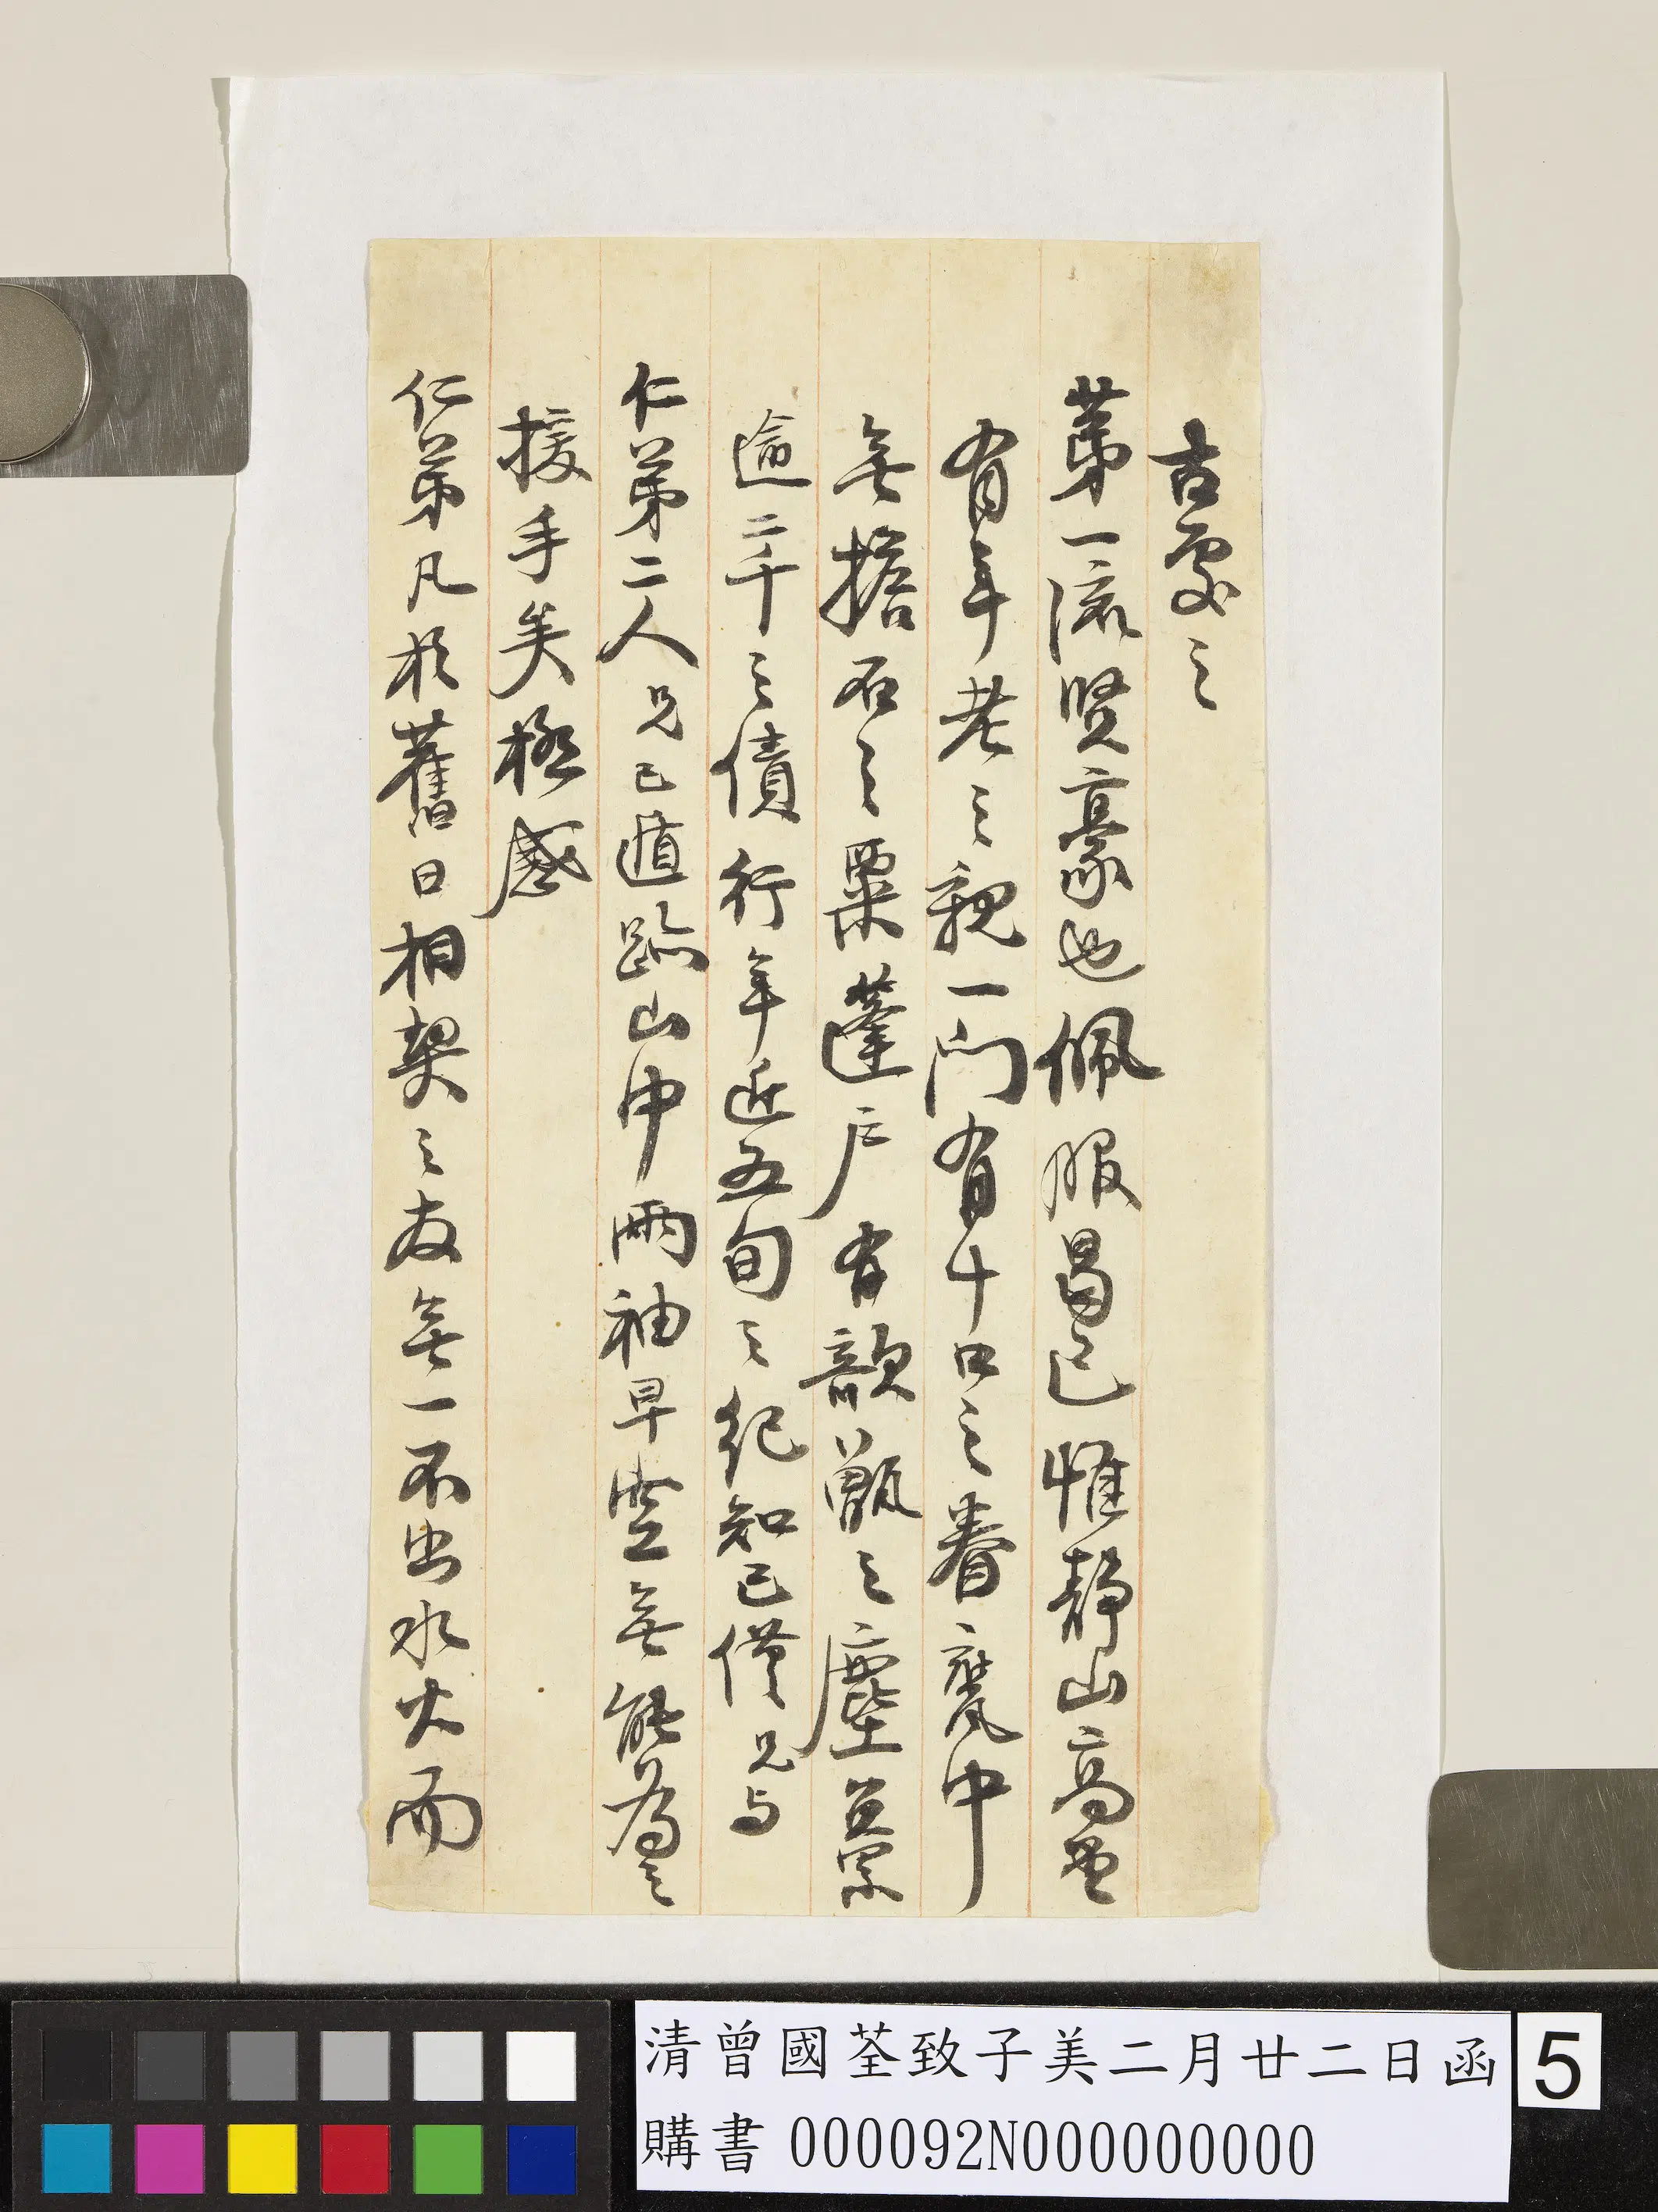 古處之
第一流賢豪也佩服曷已惟靜山高堂
有年老之親一門有十口之眷甕中
無擔石之粟蓬戶有歆甑之塵纍
逾二千之債行年近五旬之紀知己僅兄与
仁弟二人兄已遁跡山中兩袖早空無能為之
援手矣極感
仁弟凡於舊日相契之友無一不出水火而
清曾國荃致子美二月廿二日函
購書 000092N000000000
5